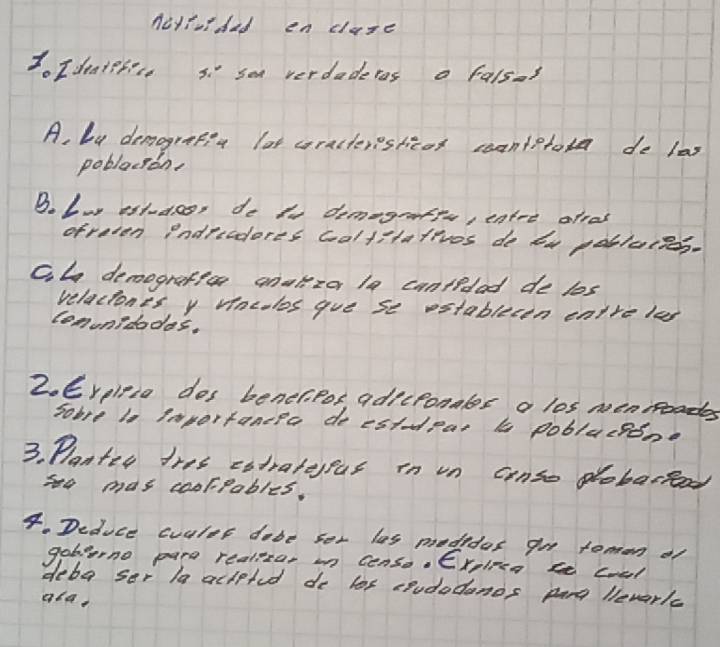 Actividad en clase
1. Identifico si son verdaderas o falsas
A. La demografía las características cuantitativa de las
población.
B. Los estudios de la demografía, entre otras
ofrecen indicadores cualitativos de la población.
C. La demografía analiza la cantidad de los
relaciones y vínculos que se establecen entre las
comunidades.
2. Explica dos beneficios adicionales a los mencionados
sobre la importancia de estudiar la población.
3. Plantea tres estrategias en un censo
sea mas confiables.
4. Deduce cuales debe ser las medidas que toman el
gobierno para realizar un censo. Explica cual
deba ser la actitud de los ciudadanos para llevarlo